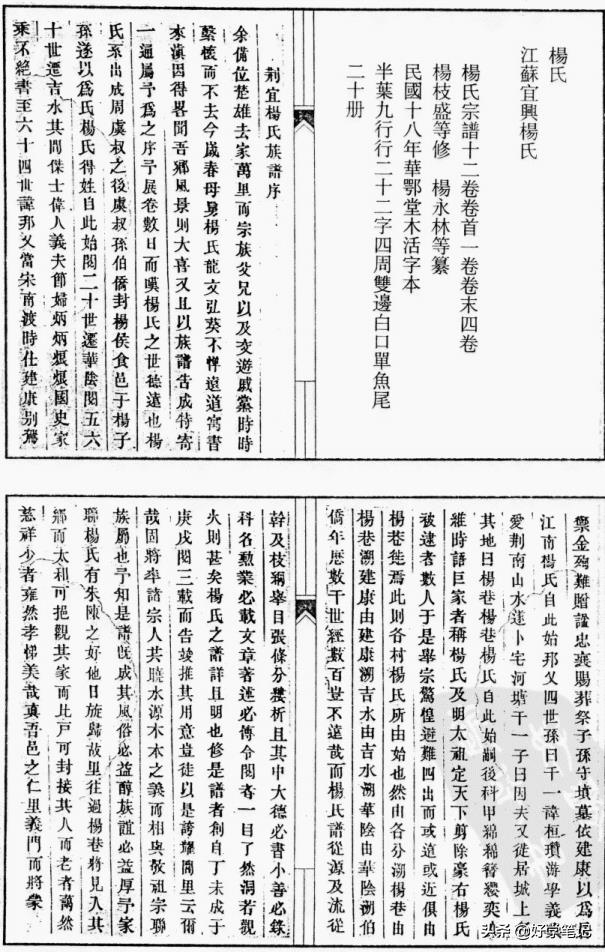 楊氏
江蘇宜興楊氏
楊氏宗譜十二卷卷首一卷卷末四卷
楊枝盛等修　楊永林等纂
民國十八年華鄂堂木活字本
半葉九行行二十二字四周雙邊白口單魚尾
二十册
荆宜楊氏族譜序
余備位楚雄去家萬里而宗族父兄以及交遊戚黨時時
繫懷而不去今歲春母舅楊氏龍文弘葵不憚遠道寓書
來滇因得畧聞吾鄉風景則大喜又且以族譜告成特寄
一通屬予爲之序予展卷數日而嘆楊氏之世德遠也楊
氏系出成周虞叔之後虞叔孫伯僑封楊侯食邑于楊子
孫遂以爲氏楊氏得姓自此始閱二十世遷華陰閱五六
十世遷吉水其間傑士偉人義夫節婦炳炳烺烺國史家
乘不絶書至六十四世諱邦乂當宋南渡時仕建康别駕
禦金殉難贈諡忠襄賜葬祭子孫守墳墓依建康以爲
江南楊氏自此始邦乂四世孫曰千一諱桓瓊游學義
愛荆南山水遂卜宅河塘干一子曰因夫又徙居城上
其地曰楊巷楊巷楊氏自此始嗣後科甲綿綿簪纓奕
維時語巨家者稱楊氏及明太祖定天下剪除豪右楊氏
被逮者數人于是舉宗驚惶避難四出而或遠或近俱由
楊巷徙焉此則各村楊氏所由始也然由各分溯楊巷由
楊巷溯建康由建康溯吉水由吉水溯華陰由華陰溯伯
僑年歷數千世經數百豈不遠哉而楊氏譜從源及流從
幹及枝稱舉目張條分縷析且其中大德必書小善必錄
科名勳業必載文章著述必傳令閱者一目了然洞若觀
火則甚矣楊氏之譜詳且明也修是譜者創自丁未成于
庚戌閱三載而告竣推其用意豈徒以是誇耀閭里云爾
哉固將率諸宗人共曉水源木本之義而相與敬祖宗聯
族屬也予知是譜旣成其風俗必益醇族誼必益厚予家
聯楊氏有朱陳之好他日旋歸故里往過楊巷將見入其
鄉而太和可挹觀其家而比戶可封接其人而老者藹然
慈祥少者雍然孝悌美哉眞吾邑之仁里義門而將蒙
头条 @好宗笔记